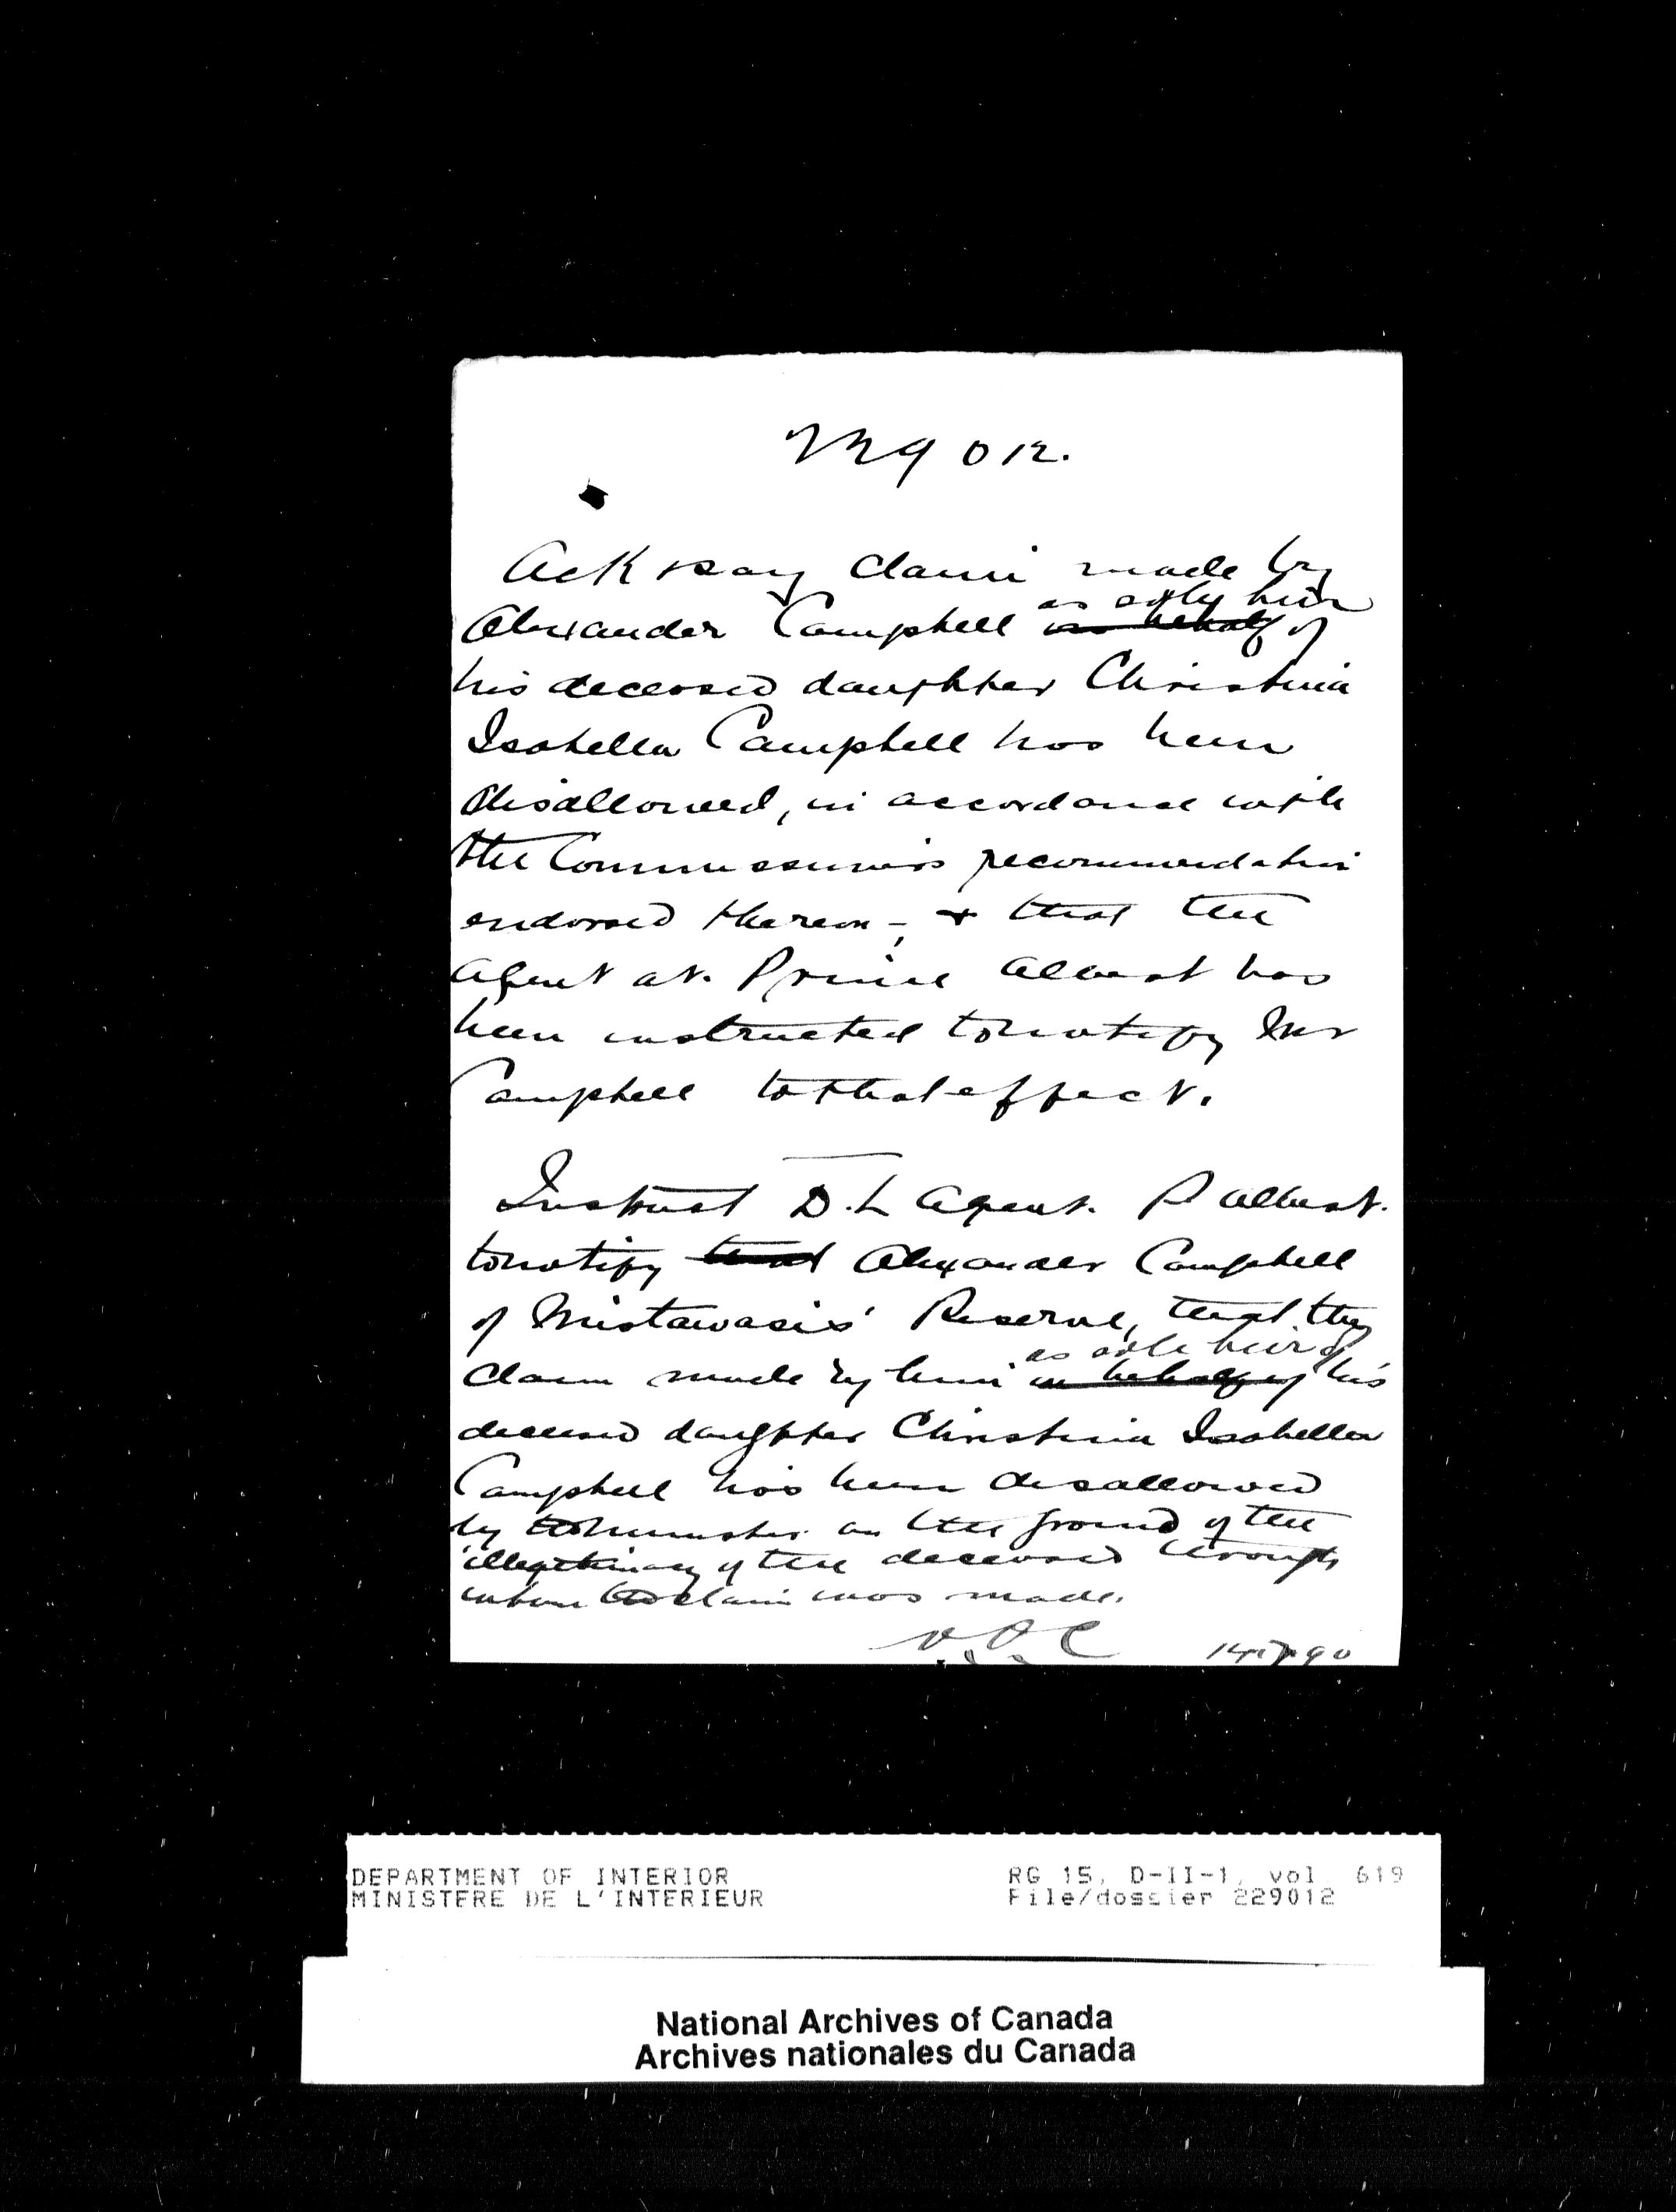 229012.
Ack & say claim made by
as only heir
Alexander Campbell in behalf of
his deceased daughter Christina
Isabella Campbell has been
disallowed, in accordance with
the Commissioners recommendation
endorsed thereon -, & that the
Agent at. Prince Albert has
been instructed to notify Mr
Campbell to that effect.
Instruct D. L Agent. P Albert.
to notify that Alexander Campbell
of Mistawasis' Reserve, that the
as sole heir of
claim made by him in behalf of his
deceased daughter Christina Isabella
Campbell has been disallowed
by the Minister on the ground of the
illegitimacy of the deceased through
whom the claim was made.
90
DEPARTMENT OF INTERIOR RG 15, D-II-1, vol 619
MINISTERE DE L'INTERIEUR File/dossier 229012
National Archives of Canada
Archives nationales du Canada